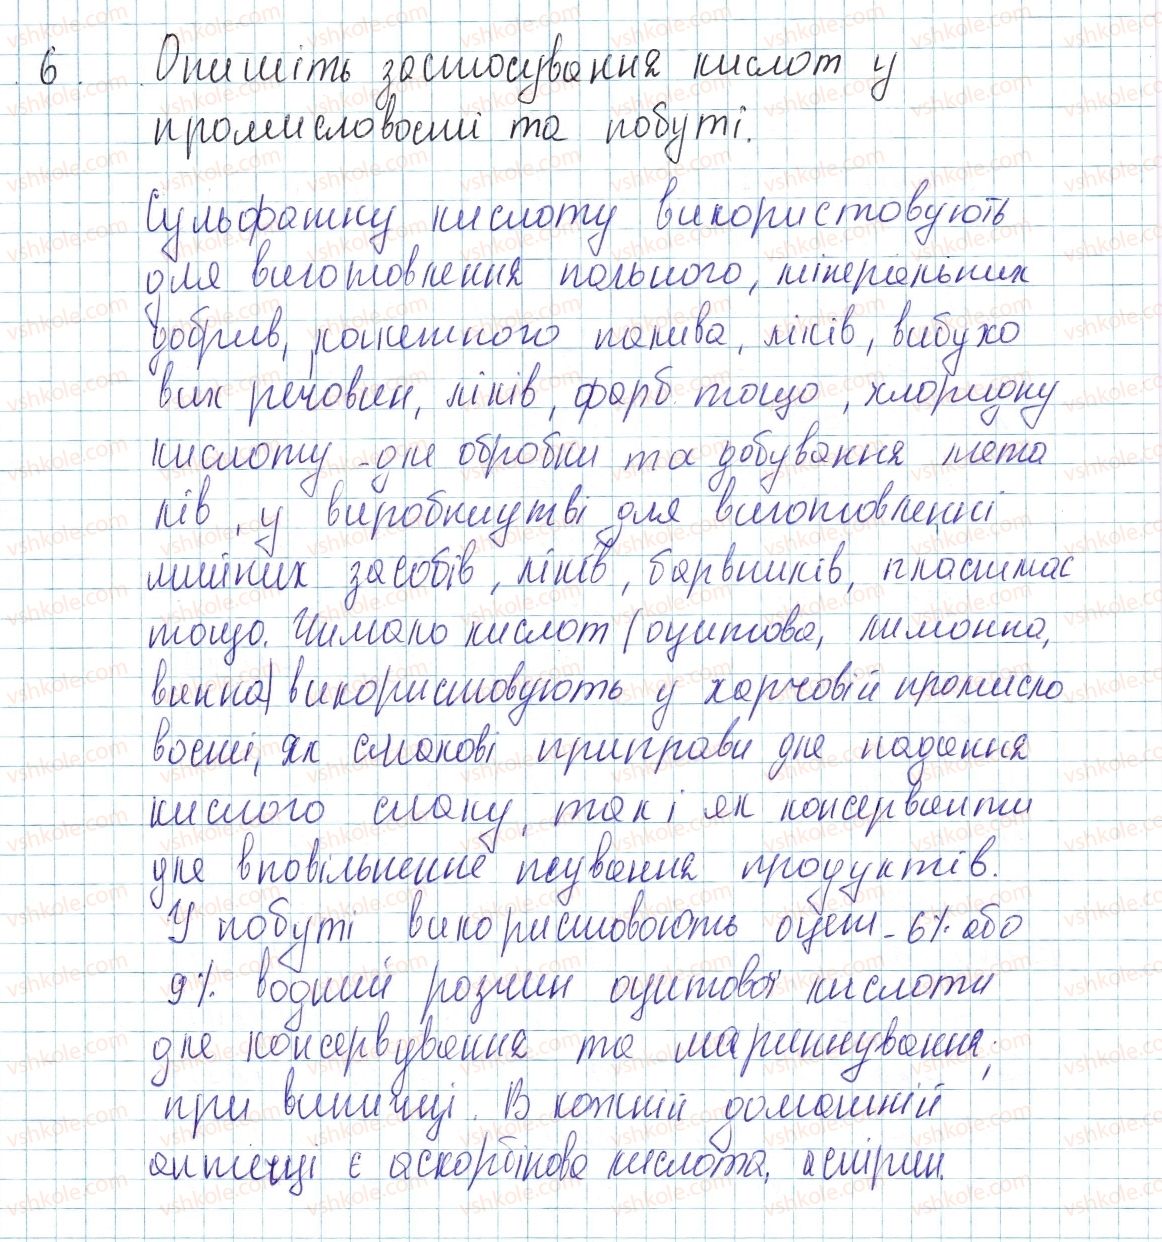 6. Опишіть застосування кислот у
промисловості та побуті.
Сульфатну кислоту використовують
для виготовлення пального, мінеральних
добрив, ракетного палива, ліків, вибухо
вих речовин, ліків, фарб тощо, хлоридну
кислоту - для обробки та добування мета
лів, у виробництві для виготовленні
мийних засобів, ліків, барвників, пластмас
тощо. Чимало кислот (оцитова, лимонна,
винна) використовують у харчовій промисло
вості, як смакові приправи для надання
кислого смаку, так і як консерванти
для вповільнення псування продуктів.
У побуті використовоють оцет - 6% або
9% водний розчин оцитової кислоти
для консервування та маринування,
при випічці. В кожній домашній
аптечці є аскорбінова кислота, аспірин.
vshkole.com